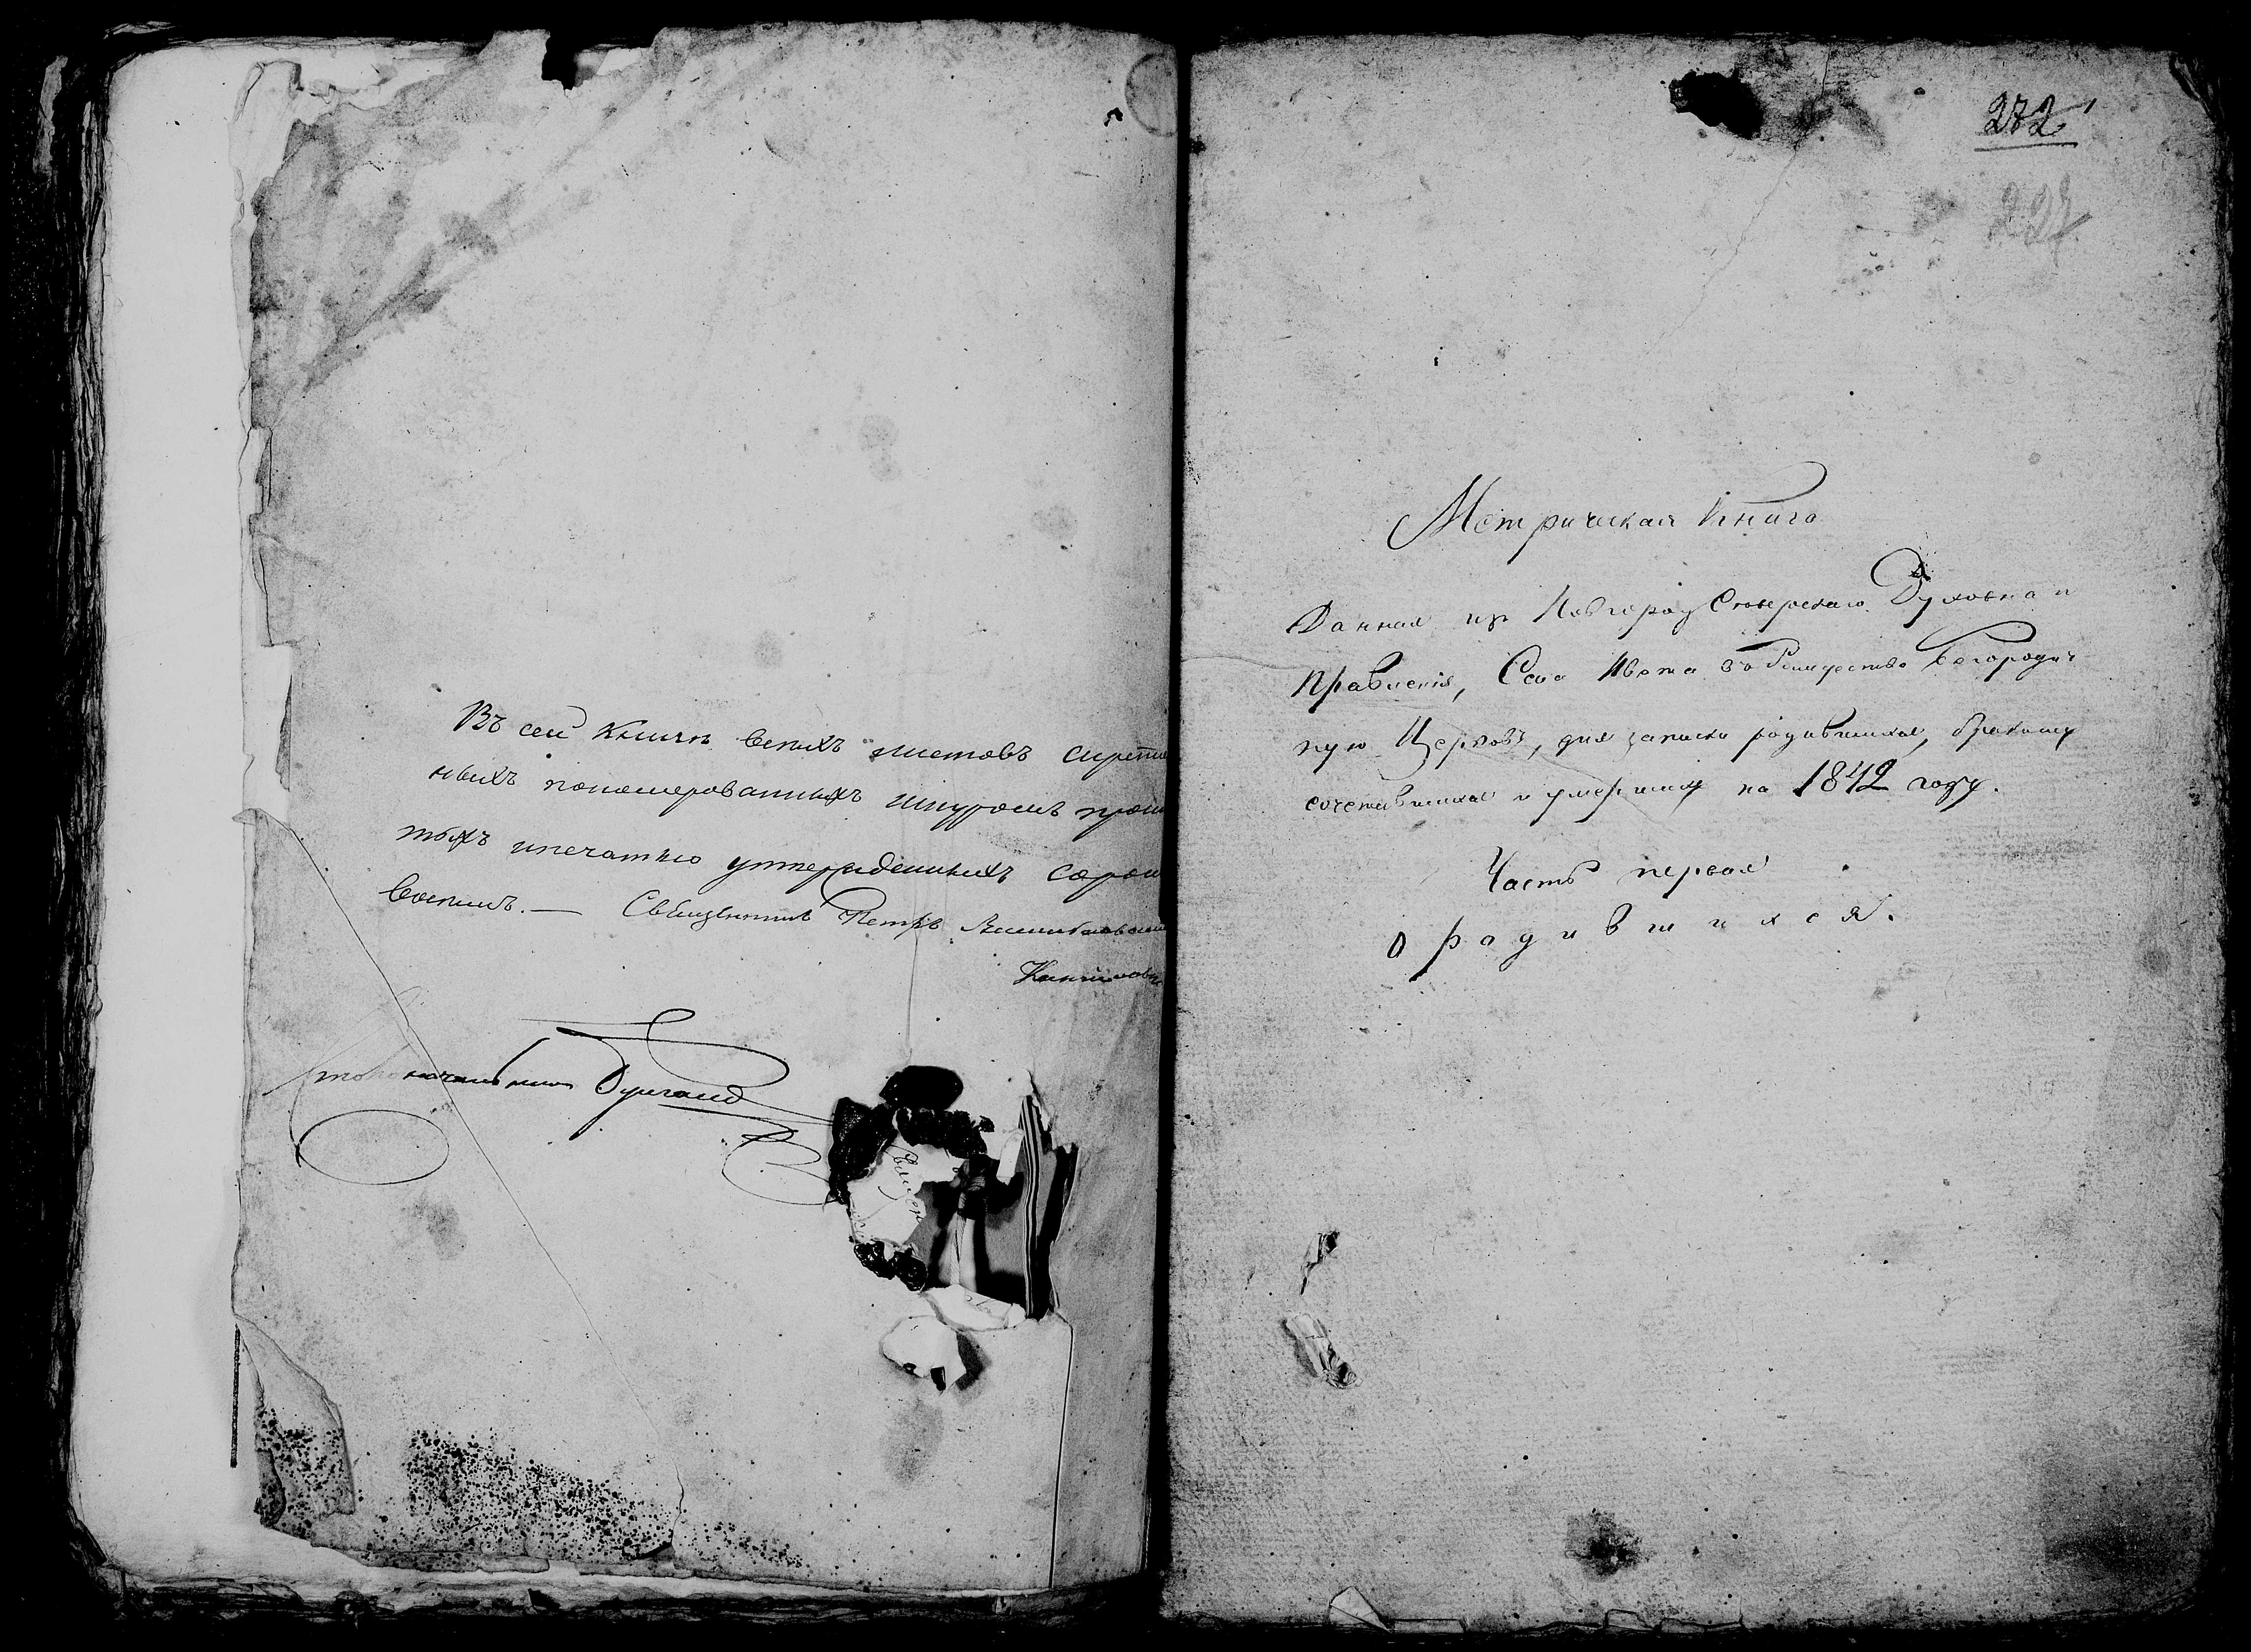 Въ сей книги всехъ листовъ скрепле
ныхъ пономерованныхъ шнуромъ прош
тыхъ ипечатью утвержденныхъ сорок
восемь. — Священникъ Петръ
Столоначальникъ
272
227
Метрическая Книга
Данная из Новгород Северскаго Духовнаго
Правленія, Села Ивота въ Рождество Богородич
ную Церковь, для записки родившихся, бракомъ
сочетавшихся и умершихъ на 1842 годъ.
Часть первая
О родившихся.